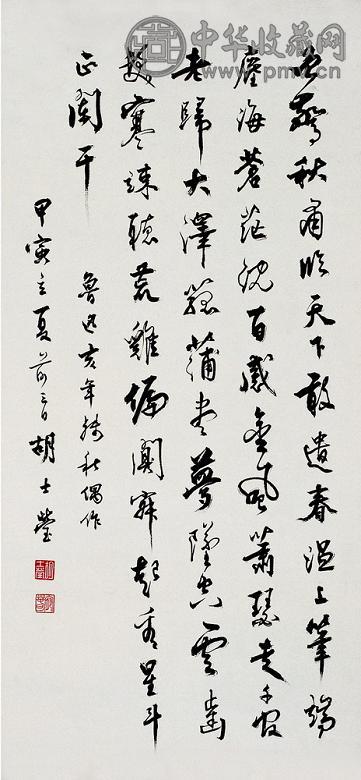 中华收藏网
曾驚秋肅臨天下敢遣春温上筆端
塵海蒼茫沉百感金風蕭瑟走千官
老歸大澤菰蒲盡夢墜空雲齒
髮寒竦聽荒雞偏闃寂起看星斗
正闌干
魯迅亥年殘秋偶作
甲寅立夏前三日胡士瑩